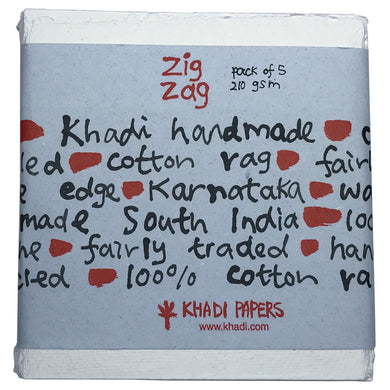 Zig
Zag
pack of 5
210 gsm
Khadi handmade
cotton rag fair
edge Karnataka
made South India 100
fairly traded han
100% cotton ra
KHADI PAPERS
www.khadi.com